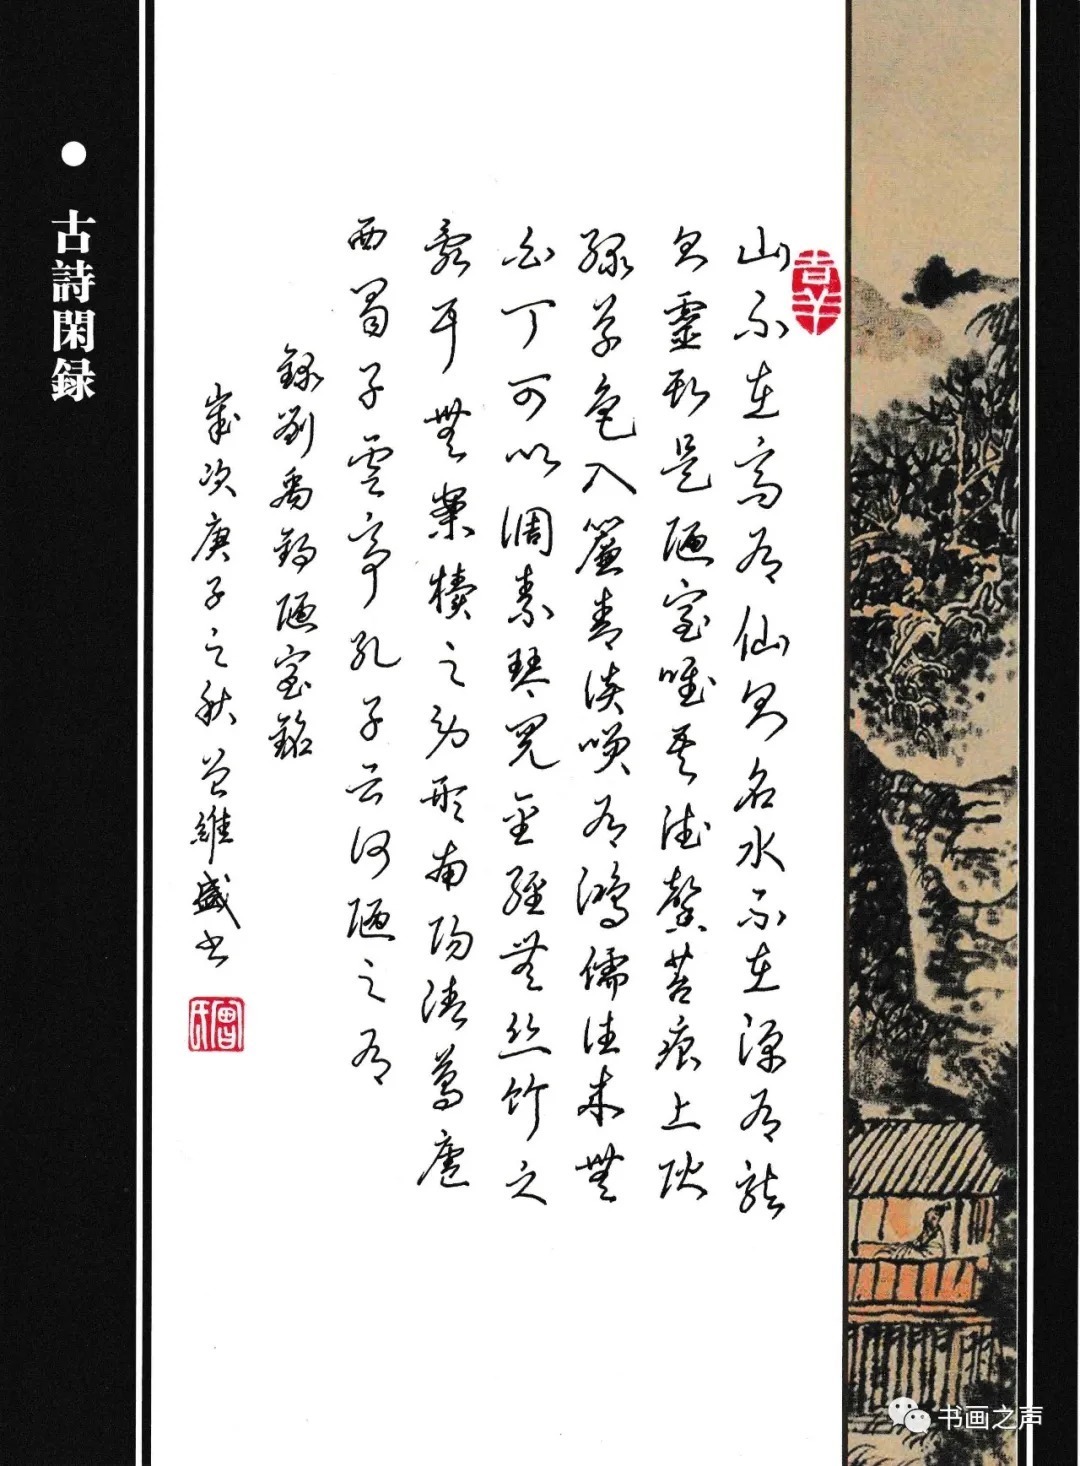 古詩閑録
吉羊
山不在高有仙則名水不在深有龍
則靈斯是陋室唯吾德馨苔痕上階
綠草色入簾青談笑有鴻儒往來無
白丁可以調素琴閱金經無絲竹之
亂耳無案牘之勞形南陽諸葛廬
西蜀子雲亭孔子云何陋之有
錄劉禹錫陋室銘
歲次庚子之秋曾維盛書
曾氏
书画之声